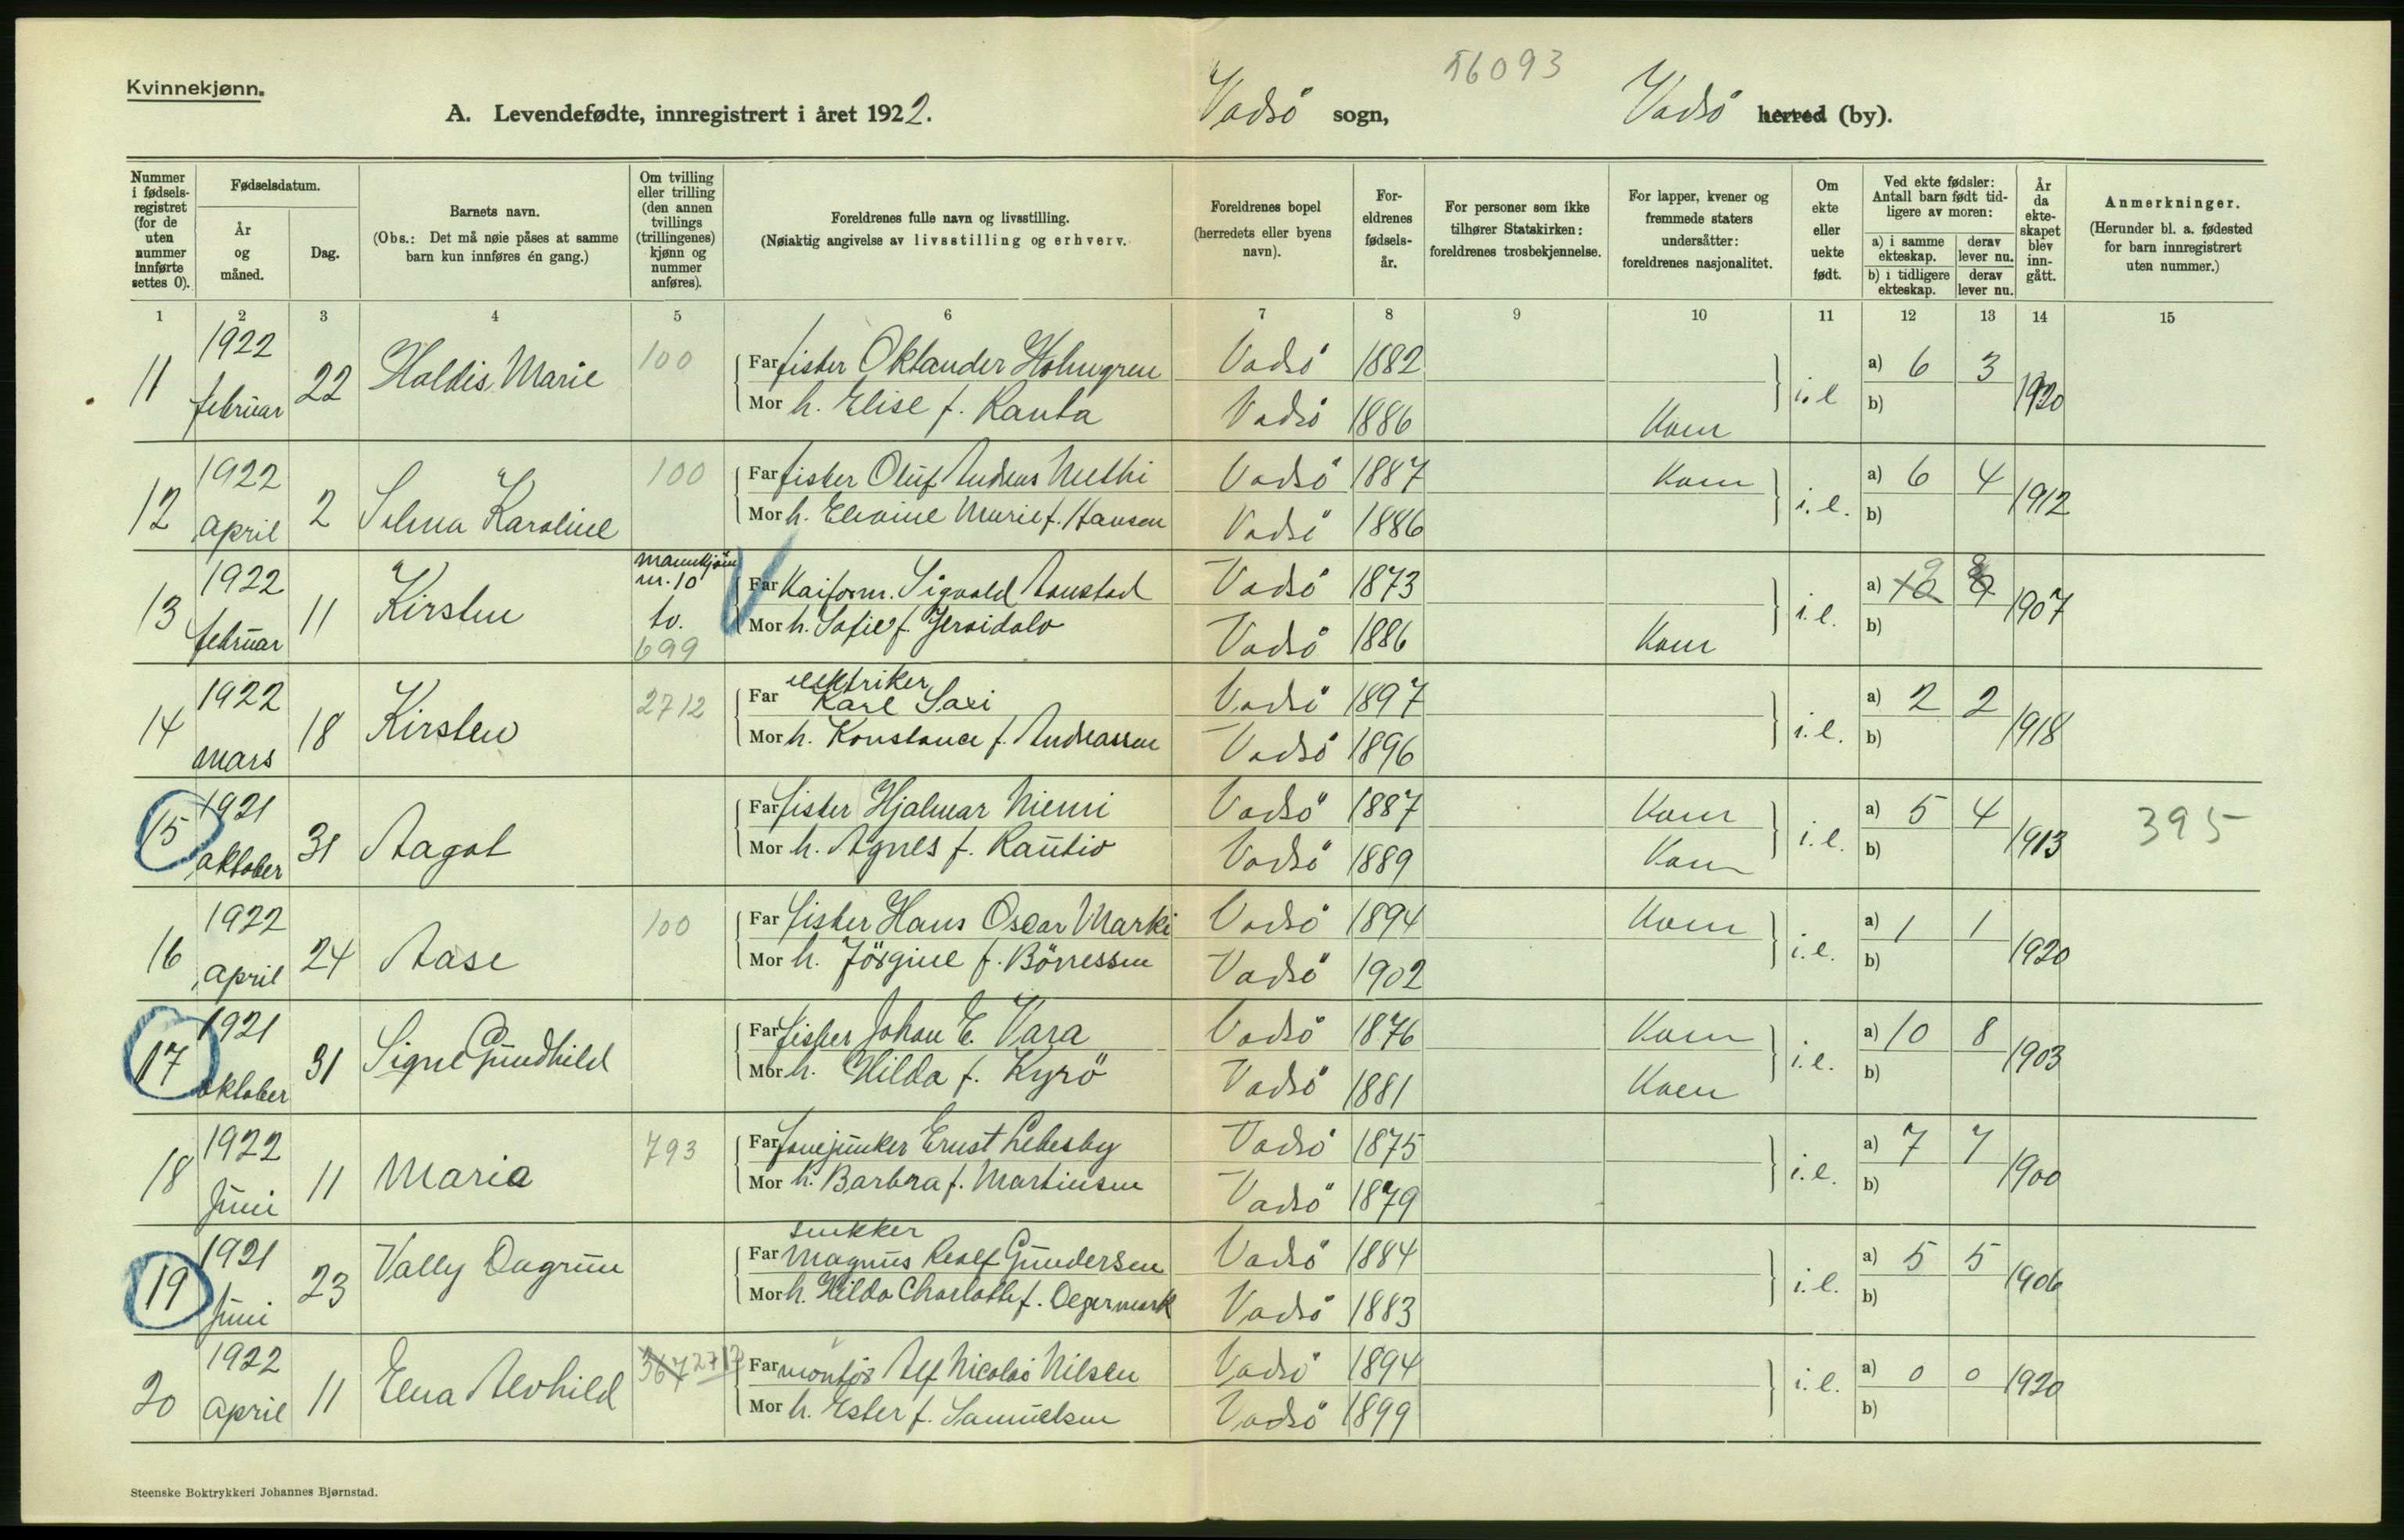 Kvinnekjønn.
A. Levendefødte, innregistrert i året 1922.
Vadsö sogn,
56093
Vadsö herred (by).
Nummer i fødsels-registret (for de uten nummer innførte settes 0).
Fødselsdatum.
År og måned.
Dag.
Barnets navn.
(Obs.: Det må nøie påses at samme barn kun innføres én gang.)
Om tvilling eller trilling (den annen tvillings (trillingenes) kjønn og nummer anføres).
Foreldrenes fulle navn og livsstilling.
(Nøiaktig angivelse av livsstilling og erhverv.
Foreldrenes bopel (herredets eller byens navn).
For-eldrenes fødsels-år.
For personer som ikke tilhører Statskirken: foreldrenes trosbekjennelse.
For lapper, kvener og fremmede staters undersåtter: foreldrenes nasjonalitet.
Om ekte eller uekte født.
Ved ekte fødsler: Antall barn født tid-ligere av moren:
a) i samme ekteskap.
derav lever nu.
b) i tidligere ekteskap.
derav lever nu.
År da ekte-skapet blev inn-gått.
Anmerkninger.
(Herunder bl. a. fødested for barn innregistrert uten nummer.)
1 2 3 4 5 6 7 8 9 10 11 12 13 14 15
11 1922 februar 22 Haldis Marie 100
Far fisker Oklander Holmgren Vadsö 1882 i.e a) 6 3 1920
Mor h. Elise f. Ranta Vadsö 1886 Kven b)
12 1922 april 2 Selma Karoline 100
Far fisker Oluf Andreas Methi Vadsö 1887 Kven i.e. a) 6 4 1912
Mor h. Elvine Marie f. Hansen Vadsö 1886 b)
13 1922 februar 11 Kirsten mannkjönn nr. 10 tv. 699
Far Kaiform. Sigvald Aanstad Vadsö 1873 i.e. a) 10 9 9 8 1907
Mor h. Sofie f. Jeraidalo Vadsö 1886 Kven b)
14 1922 mars 18 Kirsten 2712
Far elektriker Karl Saxi Vadsö 1897 i.e. a) 2 2 1918
Mor h. Konstance f. Andreassen Vadsö 1896 b)
15 1921 oktober 31 Aagot
Far fisker Hjalmar Niemi Vadsö 1887 Kven i.e. a) 5 4 1913 395
Mor h. Agnes f. Rautio Vadsö 1889 Kven b)
16 1922 april 24 Aase 100
Far fisker Hans Oscar Marki Vadsö 1894 Kven i.e. a) 1 1 1920
Mor h. Jörgine f. Börressen Vadsö 1902 b)
17 1921 oktober 31 Signe Gundhild
Far fisker Johan E. Vara Vadsö 1876 Kven i.e. a) 10 8 1903
Mor h. Hilda f. Kyrö Vadsö 1881 Kven b)
18 1922 Juni 11 Maria 793
Far fanejunker Ernst Lebesby Vadsö 1875 i.e. a) 7 7 1900
Mor h. Barbra f. Martinsen Vadsö 1879 b)
19 1921 Juni 23 Vally Dagrun
Far snekker Magnus Rolf Gundersen Vadsö 1884 i.e. a) 5 5 1906
Mor h. Hilda Charlotte f. Degermark Vadsö 1883 b)
20 1922 april 11 Elna Alvhild 367 2717
Far montör Alf Nicolai Nilsen Vadsö 1894 i.e. a) 0 0 1920
Mor h. Ester f. Samuelsen Vadsö 1899 b)
Steenske Boktrykkeri Johannes Bjørnstad.